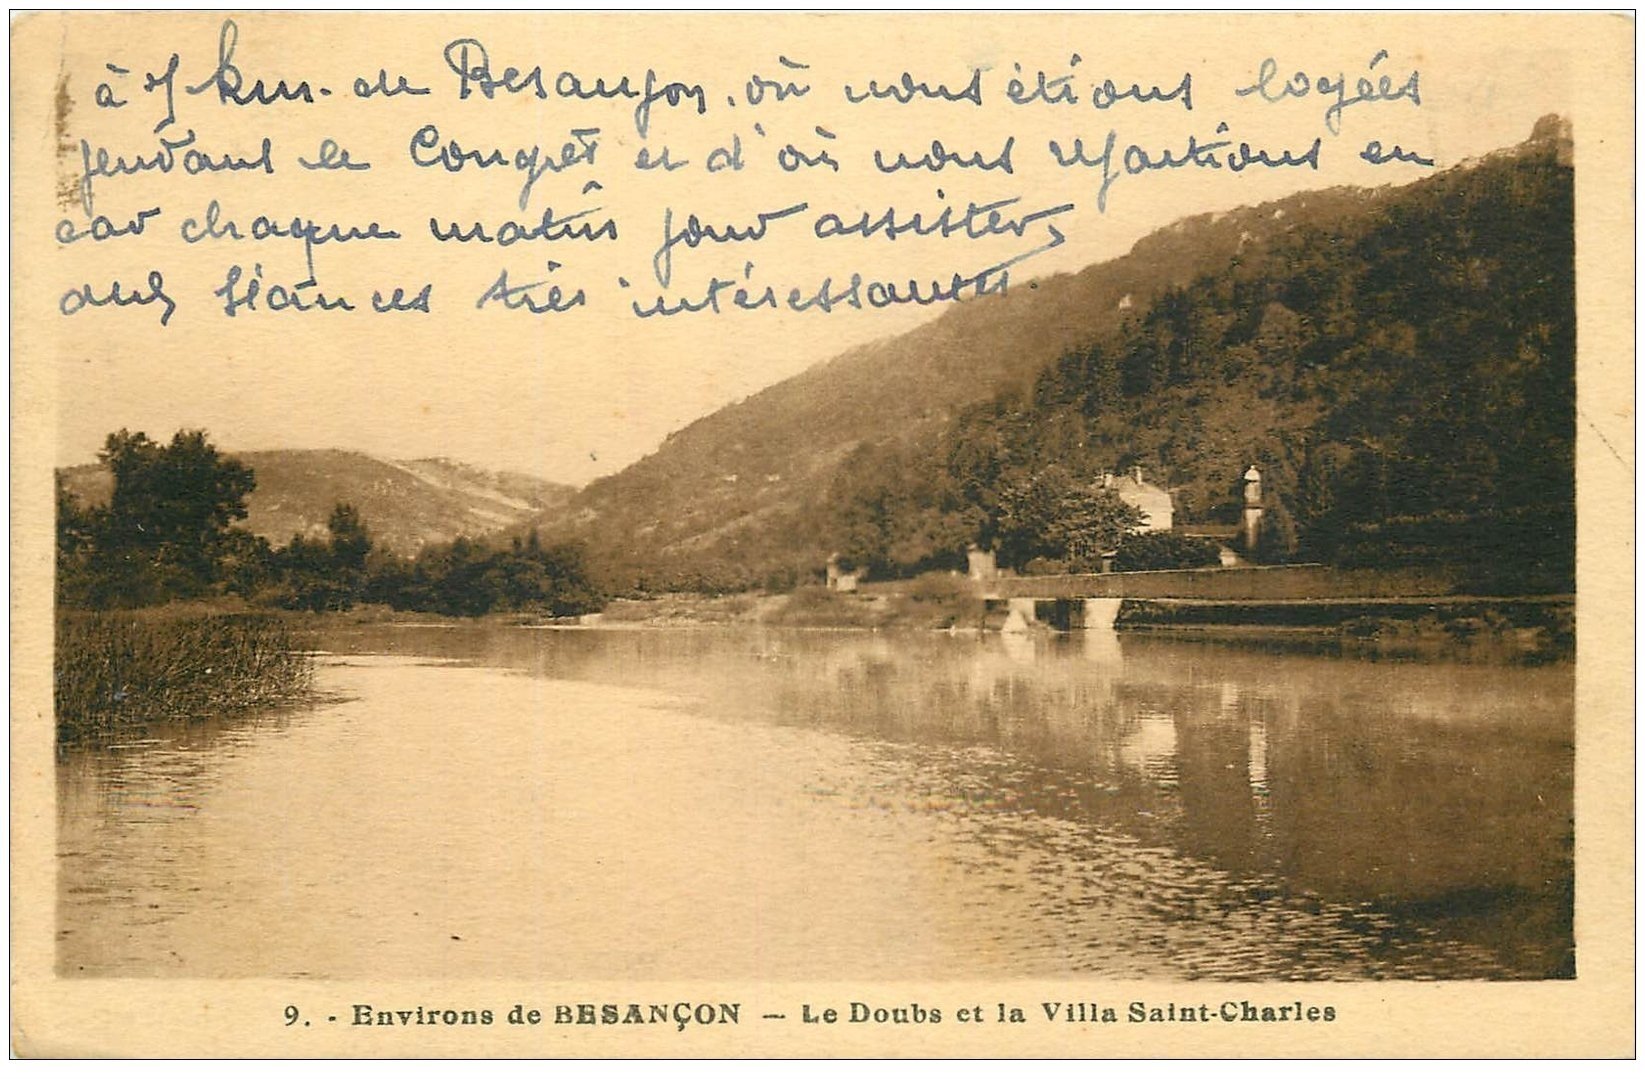 à 7 km. de Besançon, où nous étions logées
pendant le Congrès et d'où nous repartions en
car chaque matin pour assister,
aux séances très intéressantes.
9. - Environs de BESANÇON — Le Doubs et la Villa Saint-Charles